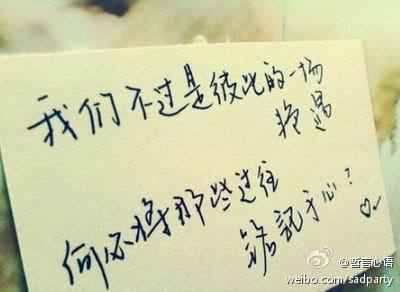 我们不过是彼此的一场
艳遇
何必将那些过往
铭记于心？
@哲言心语
weibo.com/sadparty